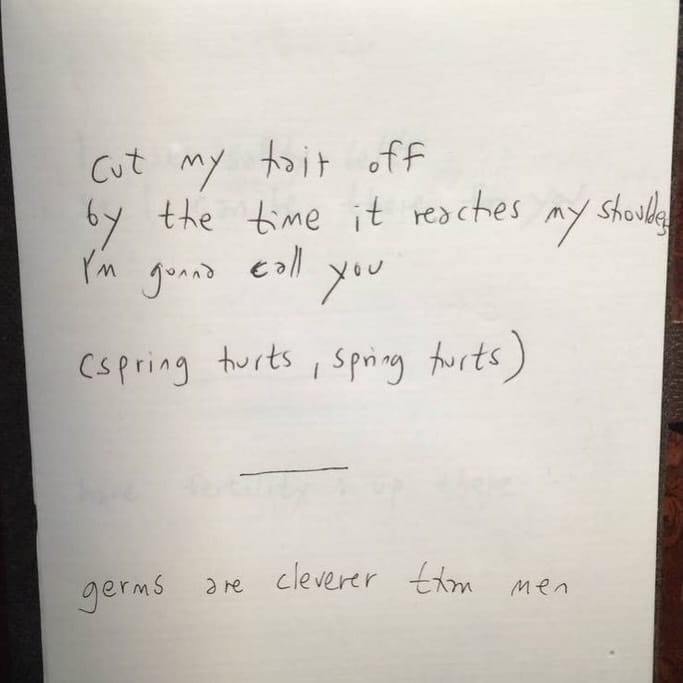 cut my hair off
by the time it reaches my shoulders
I'm gonna call you
(spring hurts, spring hurts)
germs are cleverer than men